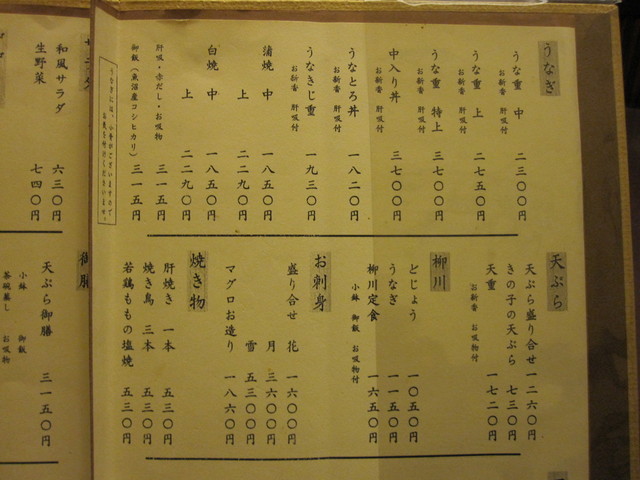 うなぎ
うな重 中 二三〇〇円
お新香 肝吸付
うな重 上 二七五〇円
お新香 肝吸付
うな重 特上 三七〇〇円
お新香 肝吸付
中入り丼 三七〇〇円
お新香 肝吸付
うなとろ丼 一八二〇円
お新香 肝吸付
うなきじ重 一九三〇円
お新香 肝吸付
蒲焼 中 一八五〇円
上 二二九〇円
白焼 中 一八五〇円
上 二二九〇円
肝吸・赤だし・お吸物 三一五円
御飯(魚沼産コシヒカリ) 三一五円
うなぎには、小骨がございますので
お気を付けくださいませ。
天ぷら
天ぷら盛り合せ 一二六〇円
きの子の天ぷら 七三〇円
天重 一七二〇円
お新香 お吸物付
柳川
どじょう 一〇五〇円
うなぎ 一一五〇円
柳川定食 一六五〇円
小鉢 御飯 お吸物付
お刺身
盛り合せ 花 一六〇〇円
月 三六〇〇円
雪 五三〇〇円
マグロお造り 一八六〇円
焼き物
肝焼き 一本 五三〇円
焼き鳥 三本 五三〇円
若鶏ももの塩焼 五三〇円
サラダ
和風サラダ 六三〇円
生野菜 七四〇円
御膳
天ぷら御膳 三一五〇円
小鉢 御飯 お吸物
茶碗蒸し